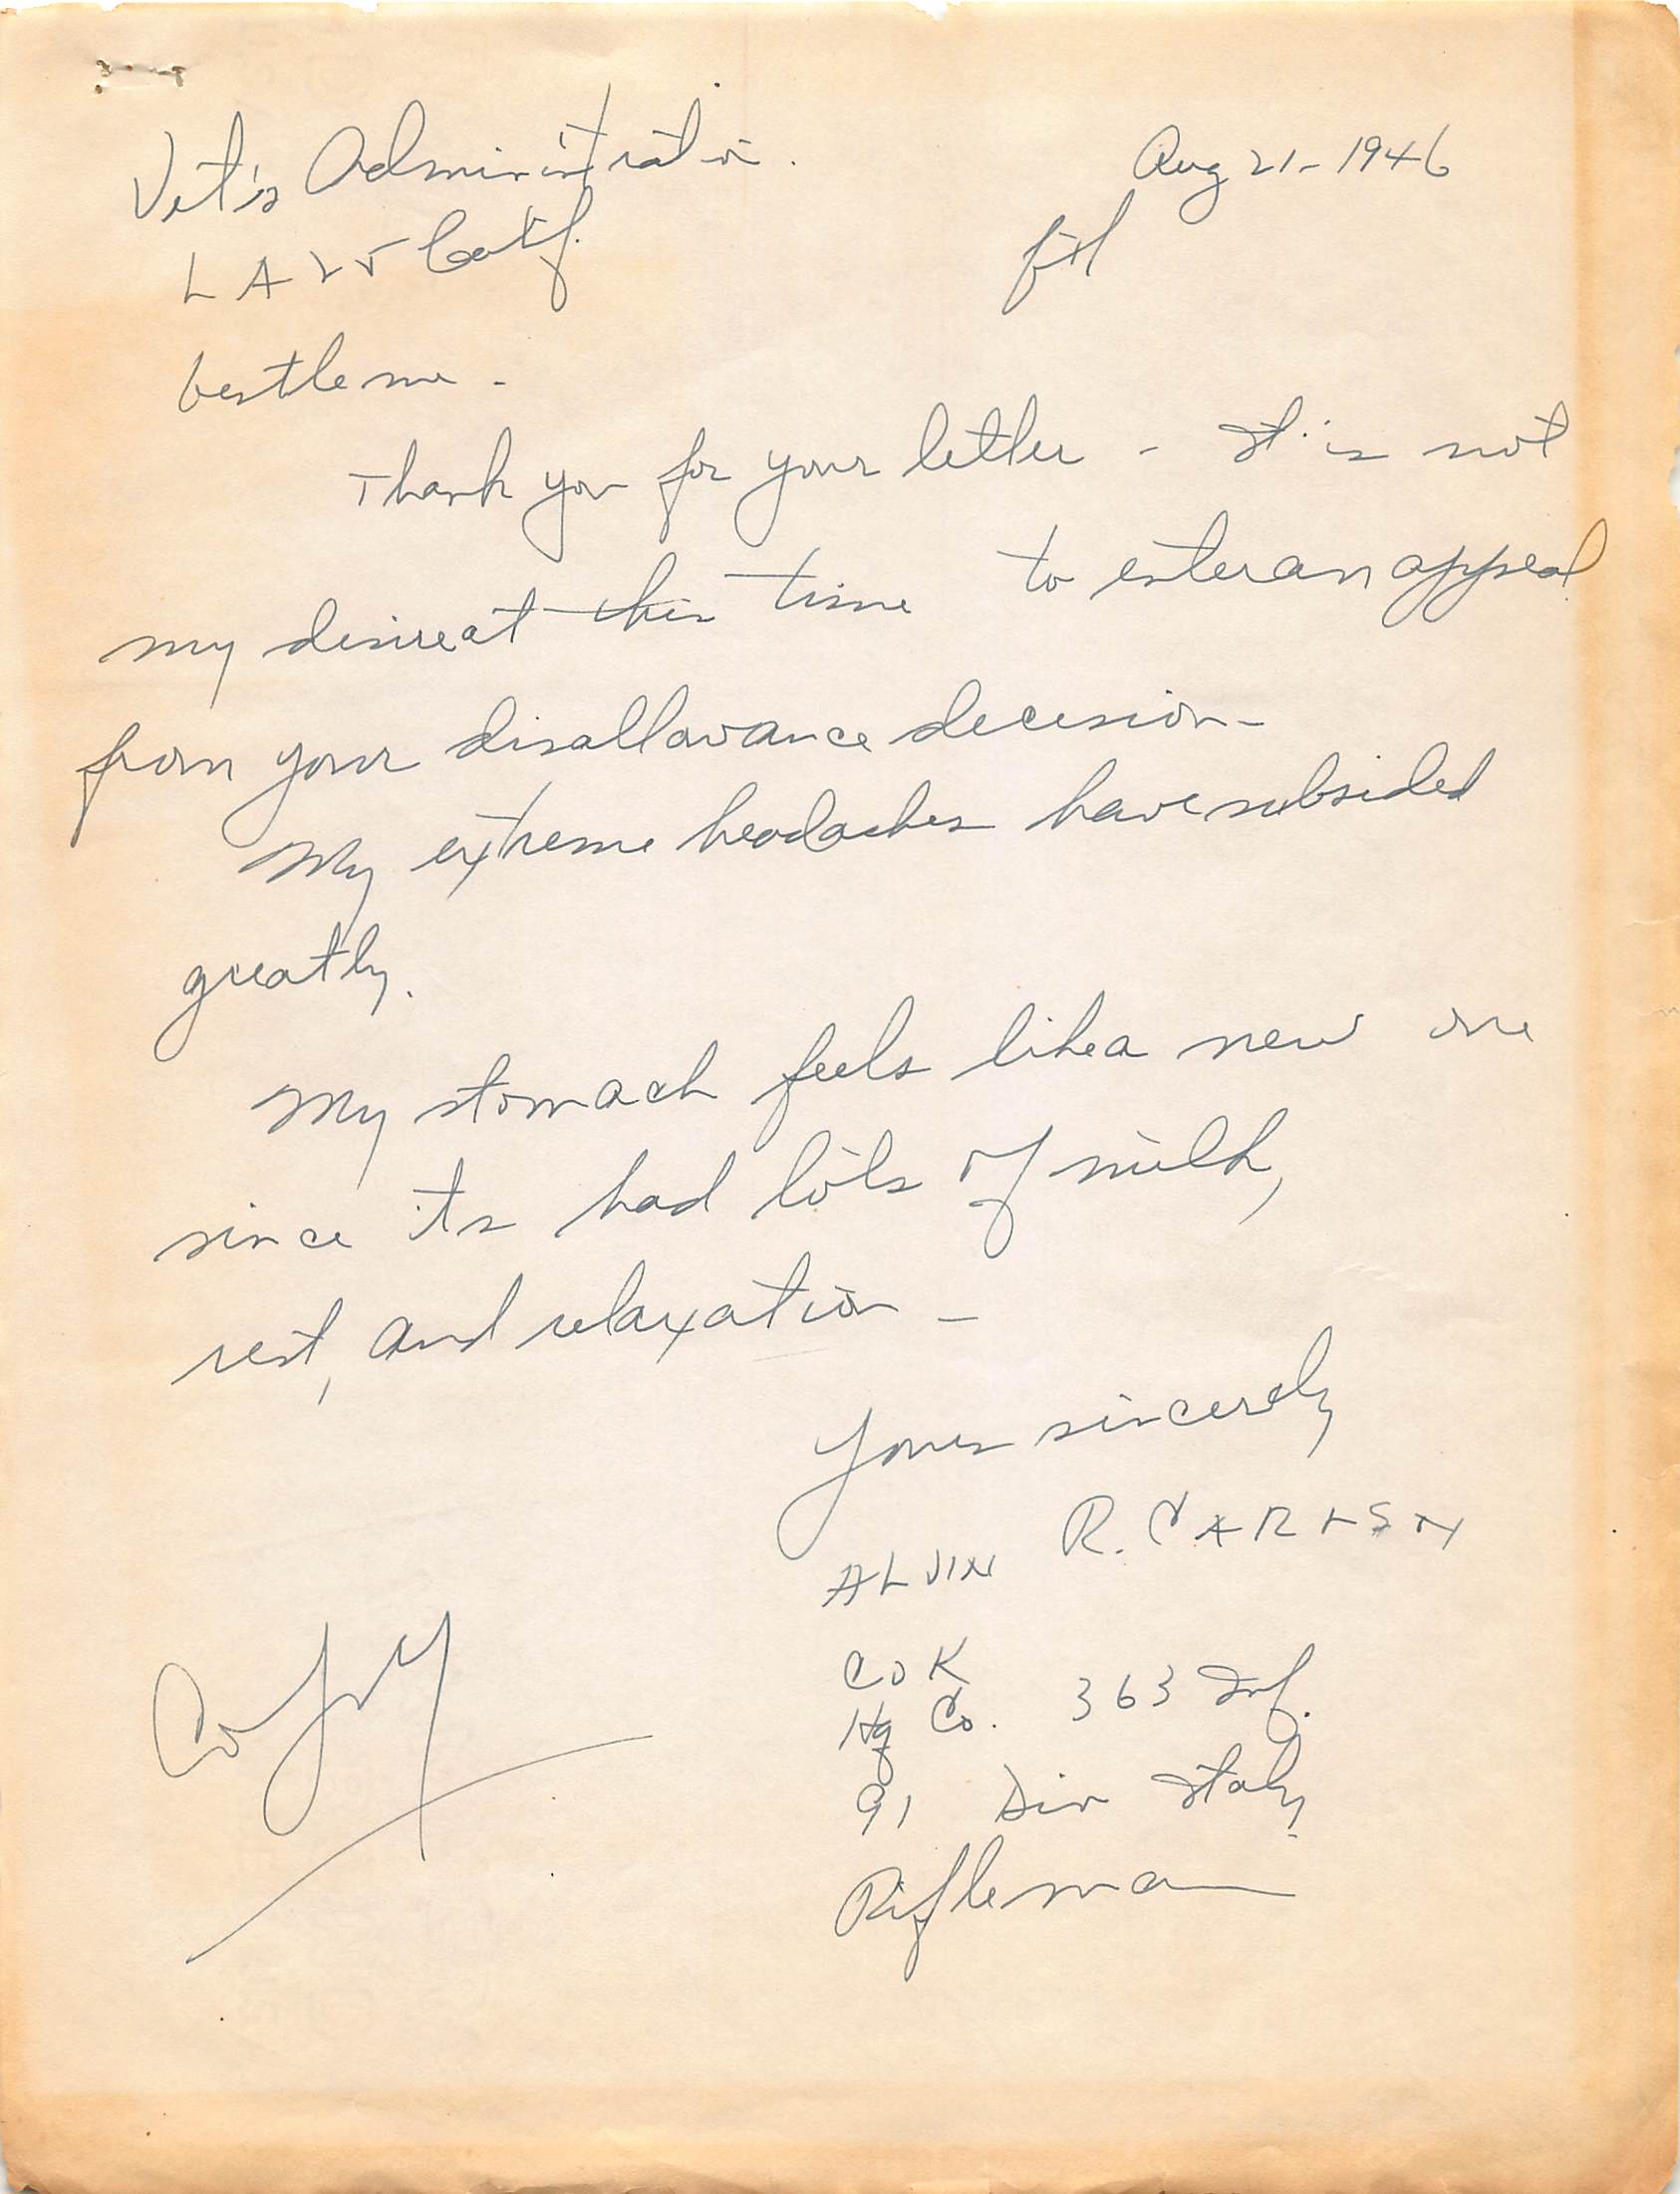 Vet's Administration. Aug 21-1946
L A 25 Calif.
Gentlemen -
Thank you for your letter - It is not
my desire at this time to enter an appeal
from your disallowance decision -
My extreme headaches have subsided
greatly.
My stomach feels like a new one
since its had lots of milk,
rest, and relaxation -
Yours sincerely
ALVIN R. CARLSON
Co K
Hq Co. 363 Inf.
91 Div Italy
Rifleman
Copy